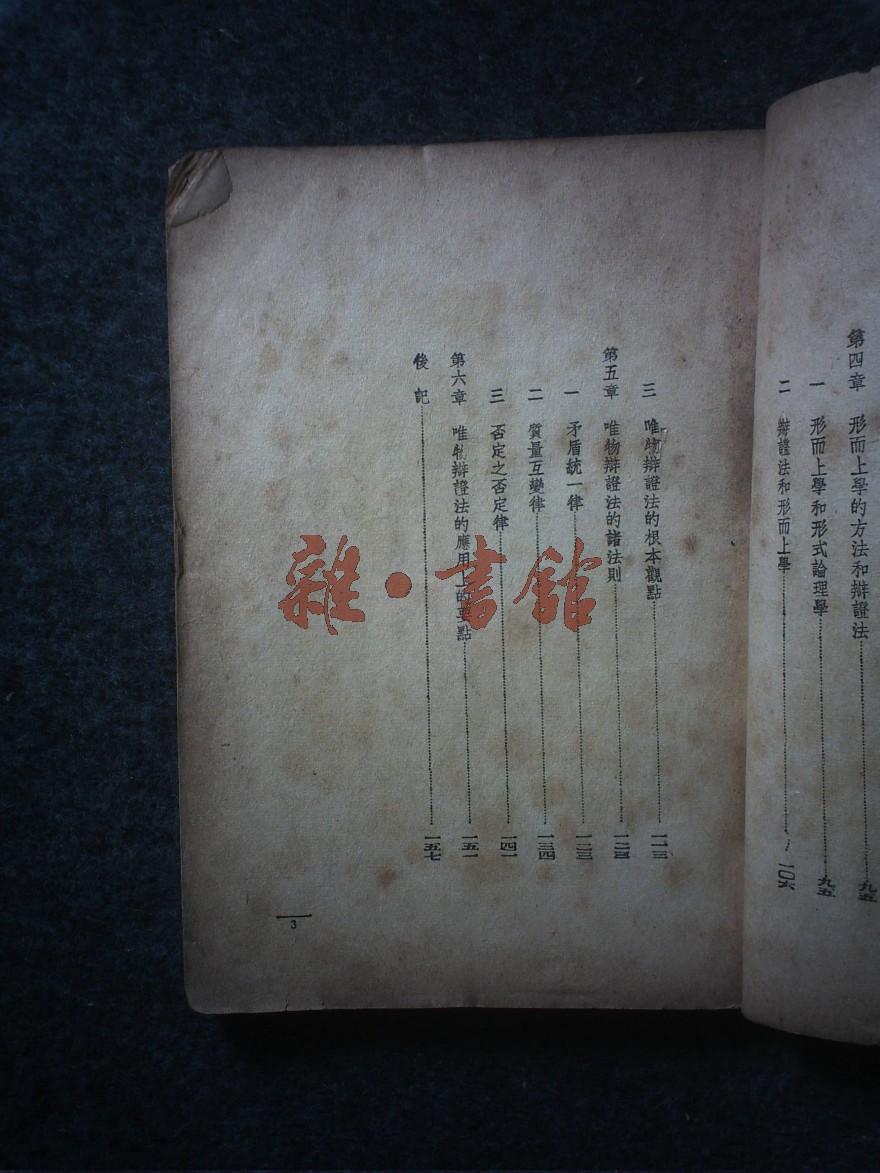 第四章　形而上學的方法和辯證法……九五
一　形而上學和形式論理學……九五
二　辯證法和形而上學……一〇六
三　唯物辯證法的根本觀點……一一三
第五章　唯物辯證法的諸法則……一二三
一　矛盾統一律……一二三
二　質量互變律……一三四
三　否定之否定律……一四一
第六章　唯物辯證法的應用上的要點……一五一
後記……一五七
3
雜·書館